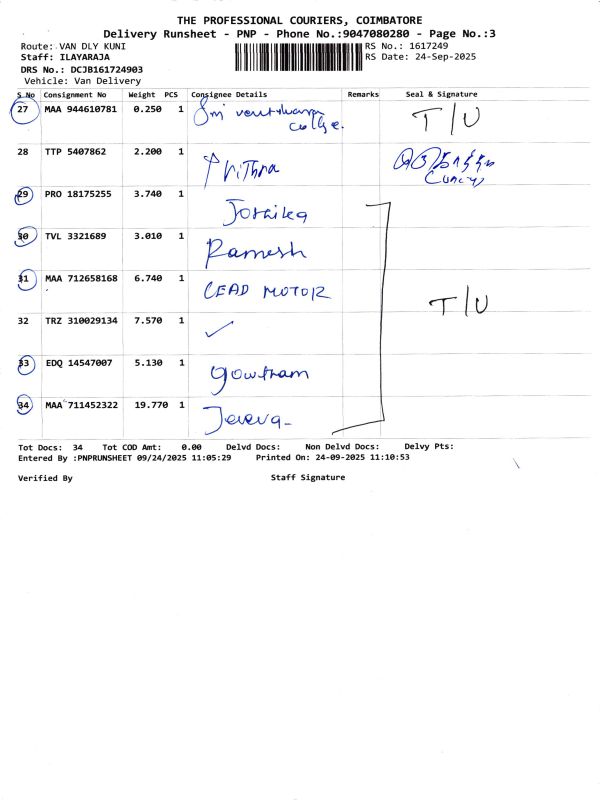 THE PROFESSIONAL COURIERS, COIMBATORE
Delivery Runsheet - PNP - Phone No.:9047080280 - Page No.:3
Route: VAN DLY KUNI
RS No.: 1617249
Staff: ILAYARAJA
RS Date: 24-Sep-2025
DRS No.: DCJB161724903
Vehicle: Van Delivery
S No Consignment No Weight PCS Consignee Details Remarks Seal & Signature
27 MAA 944610781 0.250 1 Sri T/U
28 TTP 5407862 2.200 1
29 PRO 18175255 3.740 1
30 TVL 3321689 3.010 1 Ramesh
31 MAA 712658168 6.740 1 CEAD MOTOR T/U
32 TRZ 310029134 7.570 1 ✓
33 EDQ 14547007 5.130 1 Gowtham
34 MAA 711452322 19.770 1
Tot Docs: 34 Tot COD Amt: 0.00 Delvd Docs: Non Delvd Docs: Delvy Pts:
Entered By :PNPRUNSHEET 09/24/2025 11:05:29 Printed On: 24-09-2025 11:10:53
Verified By Staff Signature